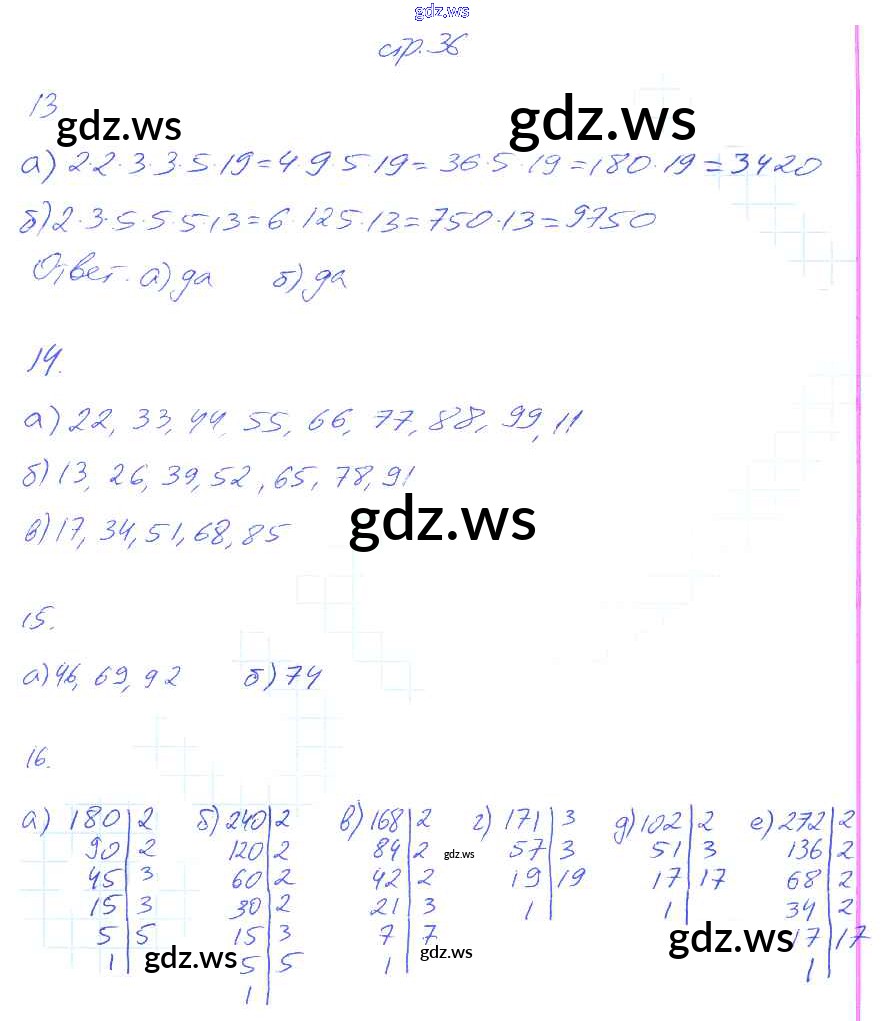 gdz.ws
стр. 36
13
gdz.ws
gdz.ws
а) 2·2·3·3·5·19=4·9·5·19=36·5·19=180·19=3420
б) 2·3·5·5·5·13=6·125·13=750·13=9750
Ответ: а) да б) да
14.
а) 22, 33, 44, 55, 66, 77, 88, 99, 11
б) 13, 26, 39, 52, 65, 78, 91
в) 17, 34, 51, 68, 85
gdz.ws
15.
а) 46, 69, 92 б) 74
16.
а) 180|2 б) 240|2 в) 168|2 г) 171|3 д) 102|2 е) 272|2
90|2 120|2 84|2 gdz.ws 57|3 51|3 136|2
45|3 60|2 42|2 19|19 17|17 68|2
15|3 30|2 21|3 1| 1| 34|2
5|5 15|3 7|7 gdz.ws 17|17
1| gdz.ws 5|5 1| gdz.ws 1|
1|